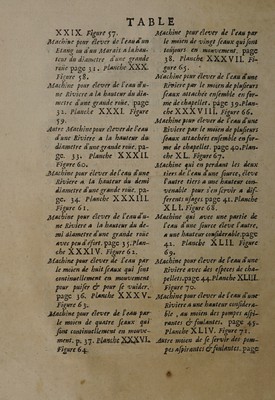 TABLE
XXIX. Figure 57.
Machine pour élever de l'eau d'un
Etang ou d'un Marais à la hau-
teur du diametre d'une grande
roüe page 31. Planche XXX.
Figure 58.
Machine pour élever de l'eau d'u-
ne Riviere à la hauteur du dia-
metre d'une grande roüe. page
32. Planche XXXI. Figure
59.
Autre Machine pour élever de l'eau
d'une Riviere à la hauteur du
diametre d'une grande roüe.
page. 33. Planche XXXII.
Figure 60.
Machine pour élever de l'eau d'une
Riviere à la hauteur du demi
diametre d'une grande roüe. pa-
ge. 34. Planche XXXIII.
Figure 61.
Machine pour élever de l'eau d'u-
ne Riviere à la hauteur du de-
mi diametre d'une grande roüe
avec peu d'éfort. page 35. Plan-
che XXXIV. Figure 62.
Machine pour élever de l'eau par
le moien de huit seaux qui sont
continuellement en mouvement
pour puiser & pour se vuider.
page 36. Planche XXXV.
Figure 63.
Machine pour élever de l'eau par
le moien de quatre seaux qui
sont continuellement en mouve-
ment. p. 37. Planche XXXVI.
Figure 64.
Machine pour élever de l'eau par
le moien de vingt seaux qui sont
toûjours en mouvement. page
38. Planche XXXVII. Fi-
gure 65.
Machine pour élever de l'eau d'une
Riviere par le moien de plusieurs
seaux attachés ensemble en for-
me de chapellet. page 39. Planche
XXXVIII. Figure 66.
Machine pour élever de l'eau d'une
Riviere par le moien de plusieurs
seaux attachés ensemble en for-
me de chapellet. page 40. Plan-
che XL. Figure 67.
Machine qui en perdant les deux
tiers de l'eau d'une source, éleve
l'autre tiers à une hauteur con-
venable pour s'en servir à dif-
ferents usages page 41. Planche
XLI. Figure 68.
Machine qui avec une partie de
l'eau d'une source éleve l'autre,
à une hauteur considerable. page
42. Planche XLII. Figure
69.
Machine pour élever de l'eau d'une
Riviere avec des especes de cha-
pellets. page 44. Planche XLIII.
Figure 70.
Machine pour élever de l'eau d'une
Riviere à une hauteur considera-
ble, au moien des pompes aspi-
rantes & foulantes. page 45.
Planche XLIV. Figure 71.
Autre moien de se servir des pom-
pes aspirantes & foulantes. page